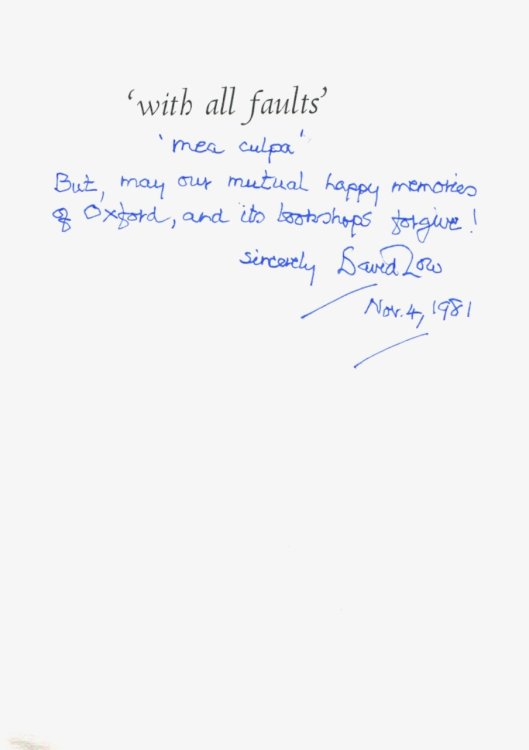 ‘with all faults’
'mea culpa'
But, may our mutual happy memories
of Oxford, and its bookshops forgive!
sincerely David Low
Nov. 4, 1981